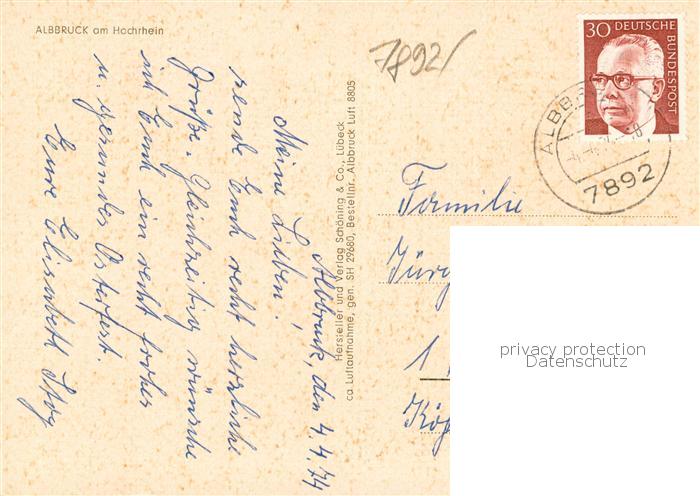 ALBBRUCK am Hochrhein
7892/
30 DEUTSCHE
BUNDESPOST
ALBB
7892
Hersteller und Verlag Schöning & Co., Lübeck
ca Luftaufnahme, gen. SH 29680, Bestellnr. Albbruck Luft 8805
Albbruck, den 4.4.74
Meine Lieben!
sende Euch recht herzliche
Grüße. Gleichzeitig wünsche
ich Euch ein recht frohes
u. gesundes Osterfest.
Eure Elisabeth
Familie
Jürg
1
Köp
privacy protection
Datenschutz